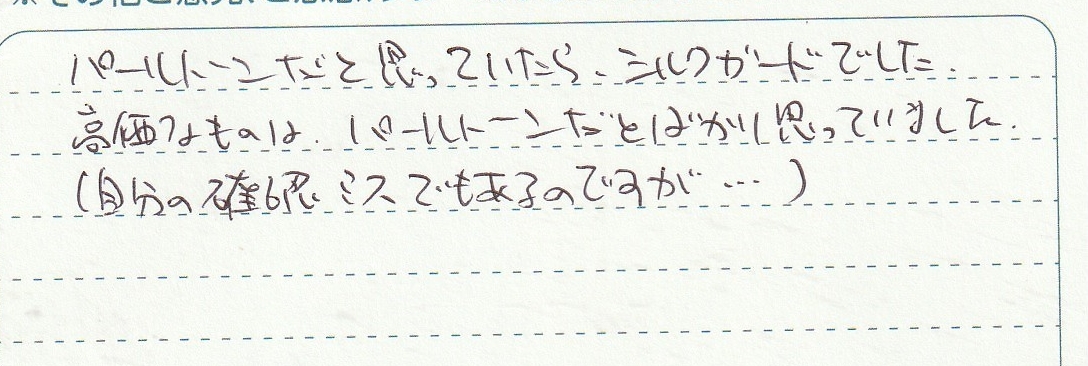 パールトーンだと思っていたら、シルクガードでした.
高価なものは、パールトーンだとばかり思っていました.
(自分の確認ミスでもあるのですが…)